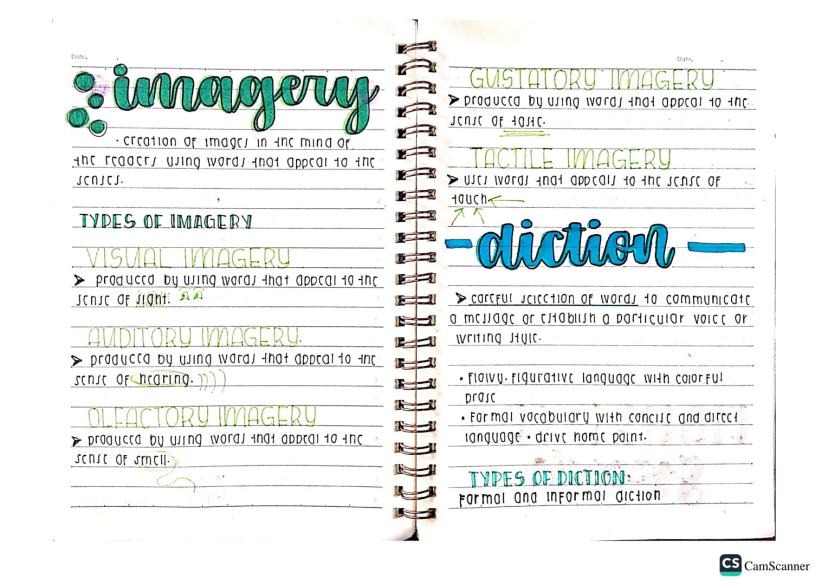 Date.
imagery
• creation of images in the mind of
the readers using words that appeal to the
senses.
TYPES OF IMAGERY
VISUAL IMAGERY
➤ produced by using words that appeal to the
sense of sight.
AUDITORY IMAGERY.
➤ produced by using words that appeal to the
sense of hearing.
OLFACTORY IMAGERY
➤ produced by using words that appeal to the
sense of smell.
Date.
GUSTATORY IMAGERY
➤ produced by using words that appeal to the
sense of taste.
TACTILE IMAGERY
➤ uses words that appeals to the sense of
touch
diction
➤ careful selection of words to communicate
a message or establish a particular voice or
writing style.
• Flowy. figurative language with colorful
prose
• Formal vocabulary with concise and direct
language • drive home point.
TYPES OF DICTION:
Formal and informal diction
CS CamScanner